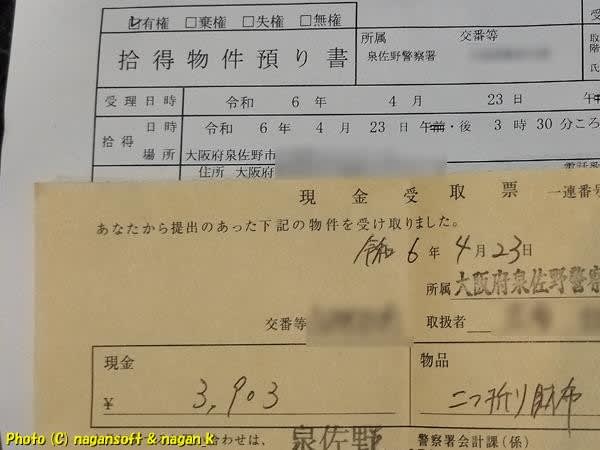 ☑有権 □棄権 □失権 □無権
拾得物件預り書
所属 交番等
泉佐野警察署
受理日時 令和 6 年 4 月 23 日
拾得 日時 令和 6 年 4 月 23 日 午前・後 3 時 30 分ころ
場所 大阪府泉佐野市
住所 大阪府
現金受取票 一連番号
あなたから提出のあった下記の物件を受け取りました。
令和 6 年 4 月 23 日
所属 大阪府泉佐野警察
交番等
取扱者
現金 物品
¥ 3,903 二つ折り財布
合わせは、 泉佐野 警察署会計課(係)
Photo (C) nagansoft & nagan_k